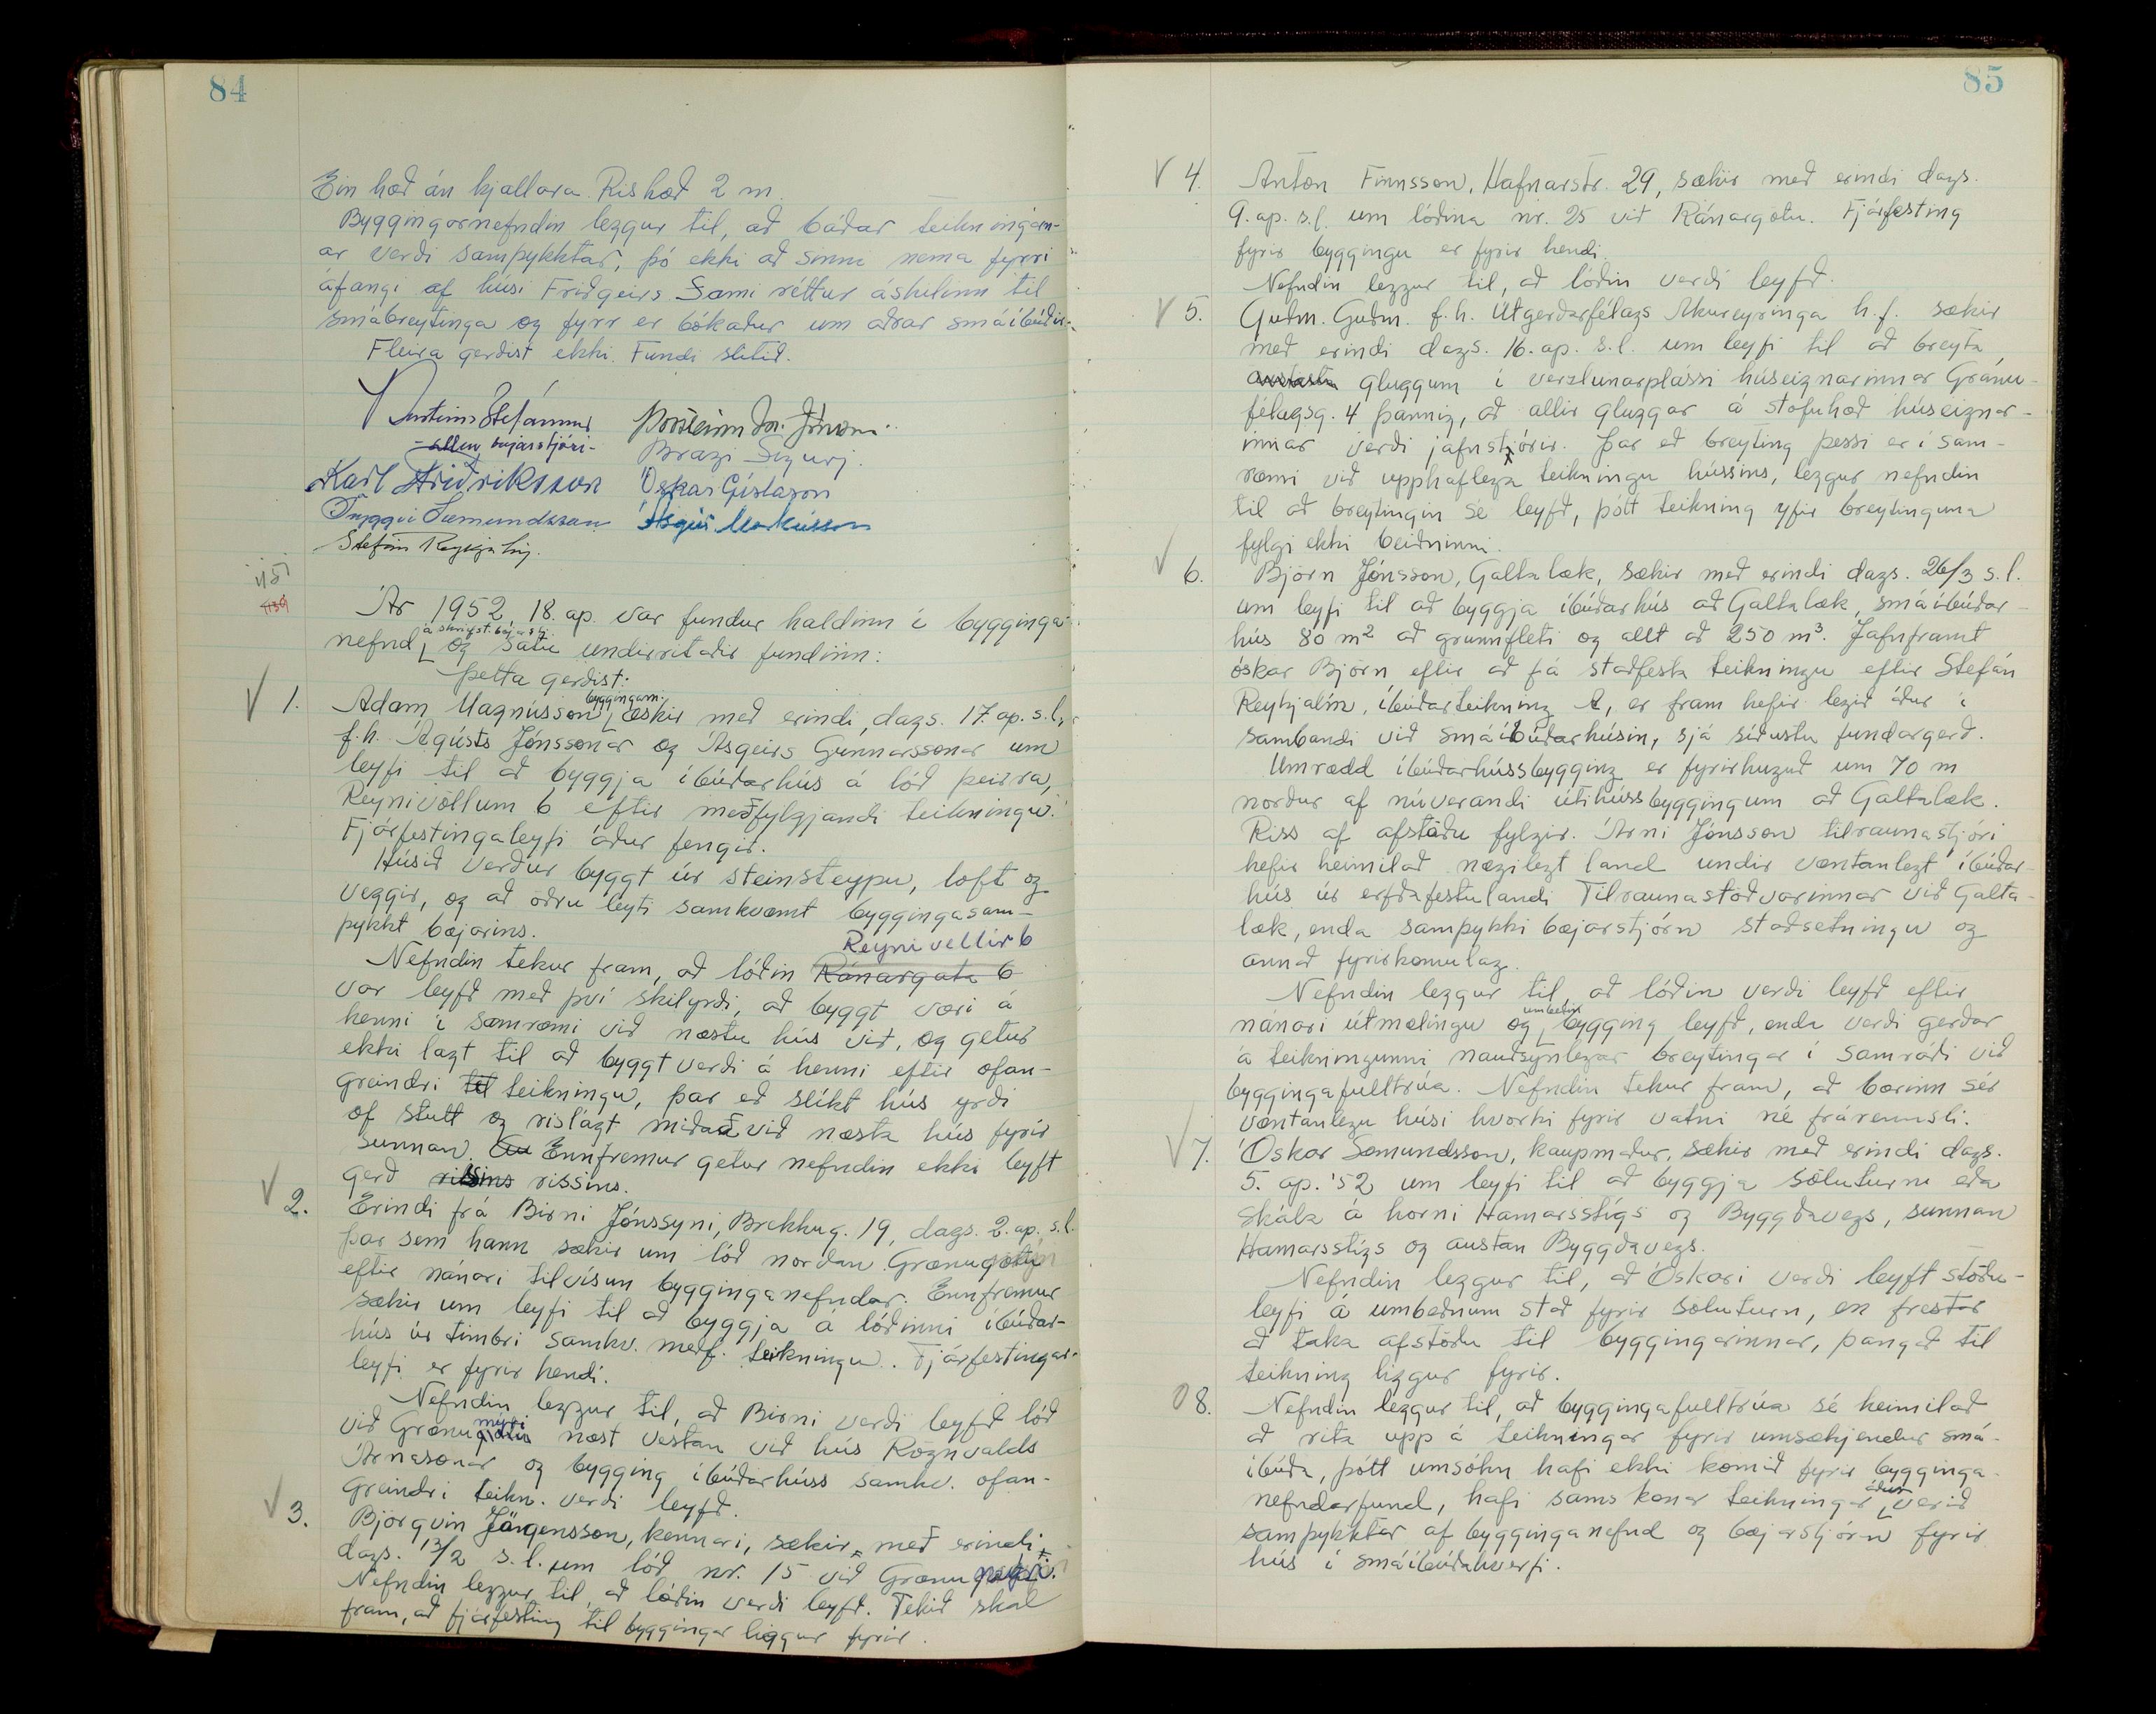 84
Ein hæð án kjallara. Rishæð 2 m.
Byggingarnefndin leggur til, að báðar teikningarn-
ar verði samþykktar, þó ekki að sinni nema fyrri
áfangi af húsi Friðgeirs. Sami réttur áskilinn til
smábreytinga og fyrr er bókaður um aðrar smáíbúðir.
Fleira gerðist ekki. Fundi slitið.
Steinn Steinsen Þorsteinn M. Jónsson
- bæjarstjóri - Bragi Sigurj.
Karl Friðriksson Óskar Gíslason
Tryggvi Sæmundsson Ásgeir Markússon
Stefán Reykjalín
Ár 1952 18. ap. var fundur haldinn í bygginga-
nefnd á skrifst. bæjarstj. og sátu undirritaðir fundinn:
Þetta gerðist:
1. Adam Magnússon byggingam. æskir með erindi, dags. 17. ap. s.l.,
f.h. Ágústs Jónssonar og Ásgeirs Gunnarssonar um
leyfi til að byggja íbúðarhús á lóð þeirra,
Reynivöllum 6 eftir meðfylgjandi teikningu.
Fjárfestingaleyfi áður fengið.
Húsið verður byggt úr steinsteypu, loft og
veggir, og að öðru leyti samkvæmt byggingasam-
þykkt bæjarins.
Reynivellir 6
Nefndin tekur fram, að lóðin Ránargata 6
var leyfð með því skilyrði, að byggt væri á
henni í samræmi við næstu hús við, og getur
ekki lagt til að byggt verði á henni eftir ofan-
greindri til teikningu, þar eð slíkt hús yrði
of stutt og rislágt miðað við næsta hús fyrir
sunnan. Ennfremur getur nefndin ekki leyft
gerð rissins.
2. Erindi frá Birni Jónssyni, Brekkug. 19, dags. 2. ap. s.l.
þar sem hann sækir um lóð norðan Grænugötu
eftir nánari tilvísun bygginganefndar. Ennfremur
sækir um leyfi til að byggja á lóðinni íbúðar-
hús úr timbri samkv. meðf. teikningu. Fjárfestingar-
leyfi er fyrir hendi.
Nefndin leggur til, að Birni verði leyfð lóð
við Grænumýri næst vestan við hús Rögnvalds
Árnasonar og bygging íbúðarhúss samkv. ofan-
greindri teikn. verði leyfð.
3. Björgvin Jörgensson, kennari, sækir með erindi
dags. 13/2 s.l. um lóð nr. 15 við Grænumýri.
Nefndin leggur til, að lóðin verði leyfð. Tekið skal
fram, að fjárfesting til byggingar liggur fyrir.
85
4. Anton Finnsson, Hafnarstr. 29, sækir með erindi dags.
9. ap. s.l. um lóðina nr. 25 við Ránargötu. Fjárfesting
fyrir byggingu er fyrir hendi.
Nefndin leggur til, að lóðin verði leyfð.
5. Guðm. Guðm. f.h. Útgerðarfélags Akureyringa h.f. sækir
með erindi dags. 16. ap. s.l. um leyfi til að breyta
gluggum í verzlunarplássi húseignarinnar Gránu-
félagsg. 4 þannig, að allir gluggar á stofuhæð húseignar-
innar verði jafnstórir. Þar eð breyting þessi er í sam-
ræmi við upphaflega teikningu hússins, leggur nefndin
til að breytingin sé leyfð, þótt teikning yfir breytinguna
fylgi ekki beiðninni.
6. Björn Jónsson, Galtalæk, sækir með erindi dags. 26/3 s.l.
um leyfi til að byggja íbúðarhús að Galtalæk, smáíbúðar-
hús 80 m² að grunnfleti og allt að 250 m³. Jafnframt
óskar Björn eftir að fá staðfesta teikningu eftir Stefán
Reykjalín, íbúðarteikning A, er fram hefir legið áður í
sambandi við smáíbúðarhúsin, sjá síðustu fundargerð.
Umrædd íbúðarhússbygging er fyrirhuguð um 70 m
norður af núverandi útihússbyggingum að Galtalæk.
Riss af afstöðu fylgir. Árni Jónsson tilraunastjóri
hefir heimilað nægilegt land undir væntanlegt íbúðar-
hús úr erfðafestulandi Tilraunastöðvarinnar við Galta-
læk, enda samþykki bæjarstjórn staðsetningu og
annað fyrirkomulag.
Nefndin leggur til, að lóðin verði leyfð eftir
nánari útmælingu og umbeðin bygging leyfð, enda verði gerðar
á teikningunni nauðsynlegar breytingar í samráði við
byggingafulltrúa. Nefndin tekur fram, að bærinn sér
væntanlegu húsi hvorki fyrir vatni né frárennsli.
7. Óskar Sæmundsson, kaupmaður, sækir með erindi dags.
5. ap. '52 um leyfi til að byggja söluturn eða
skála á horni Hamarsstígs og Byggðavegs, sunnan
Hamarsstígs og austan Byggðavegs.
Nefndin leggur til, að Óskari verði leyft stöðu-
leyfi á umbeðnum stað fyrir söluturn, en frestar
að taka afstöðu til byggingarinnar, þangað til
teikning liggur fyrir.
8. Nefndin leggur til, að byggingafulltrúa sé heimilað
að rita upp á teikningar fyrir umsækjendur smá-
íbúða, þótt umsókn hafi ekki komið fyrir bygginga-
nefndarfund, hafi sams konar teikningar áður verið
samþykktar af bygginganefnd og bæjarstjórn fyrir
hús í smáíbúðahverfi.